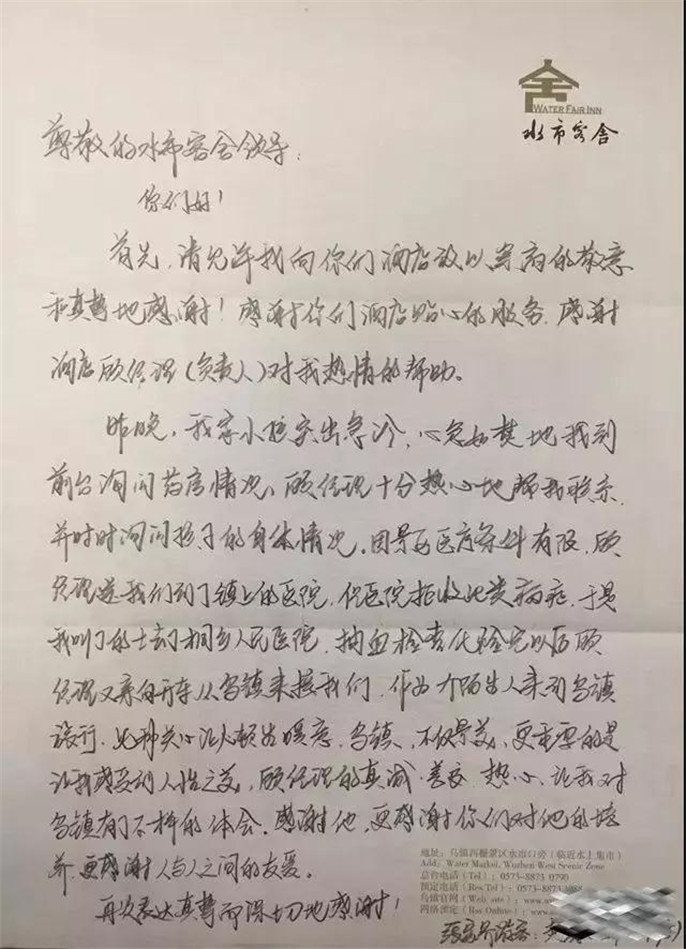 舍
WATER FAIR INN
水市客舍
尊敬的水市客舍领导：
你们好！
首先，请允许我向你们酒店致以崇高的敬意
和真挚地感谢！感谢你们酒店贴心的服务，感谢
酒店顾经理（负责人）对我热情的帮助。
昨晚，我家小孩突出急诊，心急如焚地找到
前台询问药店情况，顾经理十分热心地帮我联系，
并时时询问孩子的身体情况，因景区医疗条件有限，顾
经理送我们到了镇上的医院，但医院拒收此类病症，于是
我叫了的士去了桐乡人民医院，抽血检查化验完以后顾
经理又亲自开车从乌镇来接我们，作为陌生人来到乌镇
旅行，此种关心让人顿名暖意，乌镇，不仅景美，更重要的是
让我感受到人性之美，顾经理的真诚、善良、热心，让我对
乌镇有了不一样的体会，感谢他，更感谢你们对他的培
养，更感谢人与人之间的友爱。
再次表达真挚而深切地感谢！
地址：乌镇西栅景区水市口旁（临近水上集市）
Add：Water Market, Wuzhen West Scenic Zone
总台电话（Tel）：0573-8873 0790
预定电话（Res Tel）：0573-8873
乌镇官网（Web site）：www.
网络预定（Res Online）：www.
张家界游客：